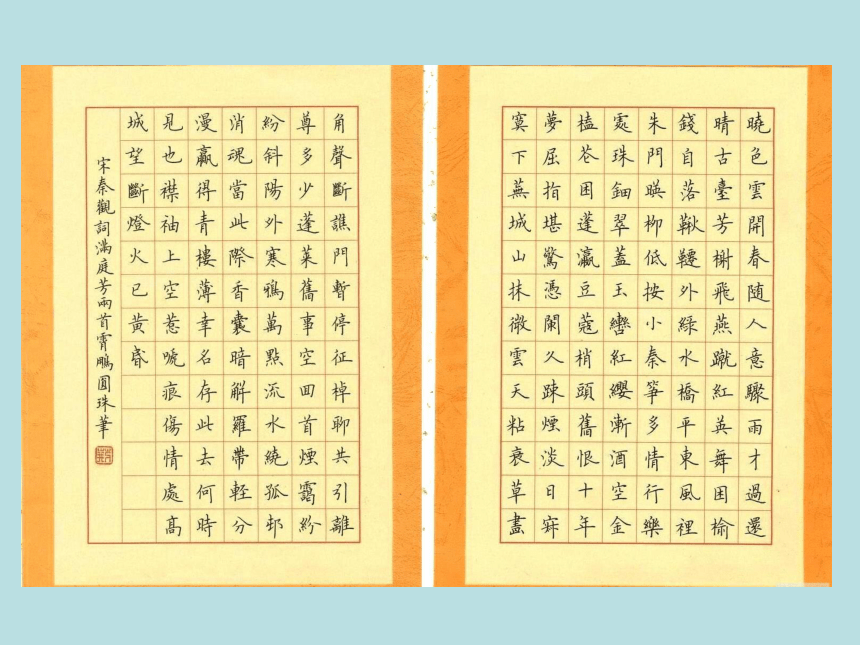 曉色雲開春隨人意驟雨才過還
晴古臺芳榭飛燕蹴紅英舞困榆
錢自落鞦韆外綠水橋平東風裡
朱門暎柳低按小秦箏多情行樂
處珠鈿翠蓋玉轡紅纓漸酒空金
榼花困蓬瀛豆蔻梢頭舊恨十年
夢屈指堪驚憑闌久疎煙淡日寂
寞下蕪城山抹微雲天粘衰草畫
角聲斷譙門暫停征棹聊共引離
尊多少蓬萊舊事空回首煙靄紛
紛斜陽外寒鴉萬點流水繞孤邨
消魂當此際香囊暗解羅帶輕分
漫贏得青樓薄幸名存此去何時
見也襟袖上空惹嗁痕傷情處高
城望斷燈火已黃昏
宋秦觀詞滿庭芳兩首霄鵬圓珠筆